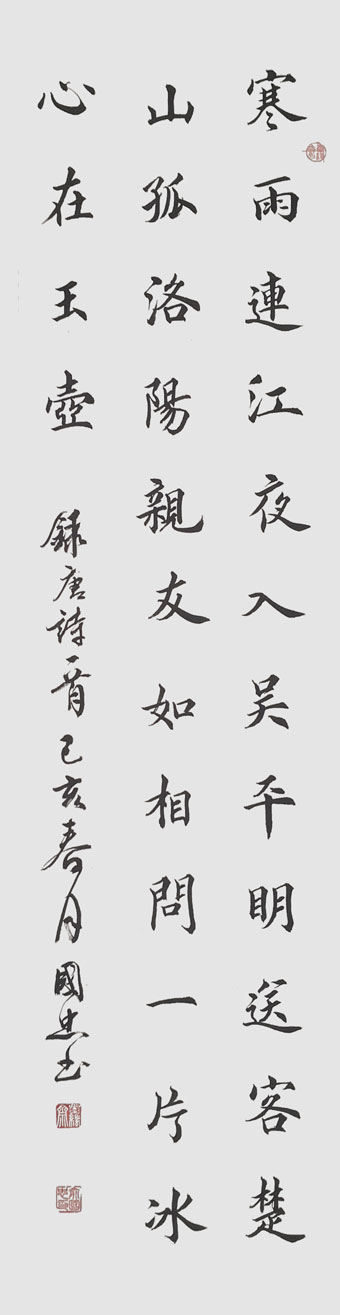 寒雨連江夜入吴平明送客楚
山孤洛陽親友如相問一片冰
心在玉壺 録唐詩一首己亥春月國忠书